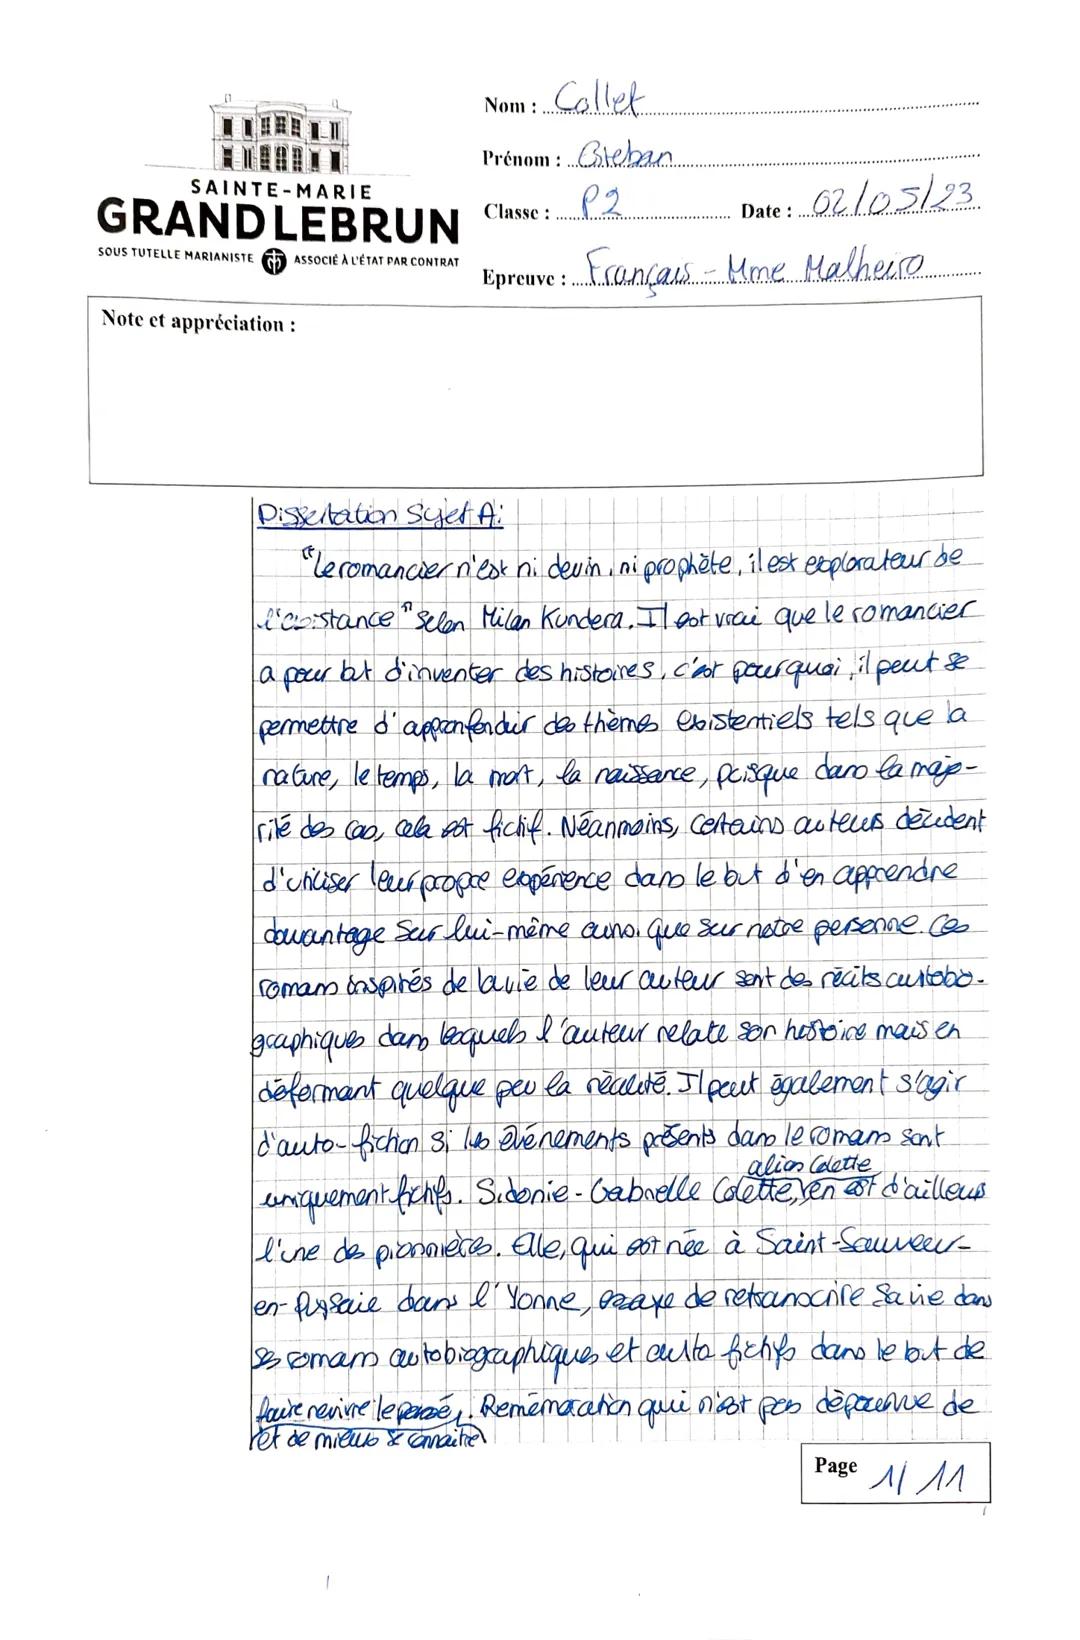 SAINTE-MARIE
GRAND LEBRUN
SOUS TUTELLE MARIANISTE ASSOCIÉ À L'ÉTAT PAR CONTRAT
Nom : Collet
Prénom : Esteban
Classe : P2 Date : 02/05/23
Epreuve : Français - Mme Malheiro
Note et appréciation :
Dissertation Sujet A:
"Le romancier n'est ni devin, ni prophète, il est explorateur de
l'existance" selon Milan Kundera. Il est vrai que le romancier
a pour but d'inventer des histoires, c'est pourquoi, il peut se
permettre d'appronfendir des thèmes existentiels tels que la
nature, le temps, la mort, la naissance, puisque dans la majo-
rité des cas, cela est fictif. Néanmoins, certains auteurs décident
d'utiliser leur propre expérience dans le but d'en apprendre
davantage sur lui-même ainsi que sur notre personne. Ces
romans inspirés de la vie de leur auteur sont des récits autobio-
graphiques dans lesquels l'auteur relate son histoire mais en
déformant quelque peu la réalité. Il peut également s'agir
d'auto-fiction si les évènements présents dans le romans sont
alias Colette
uniquement fictifs. Sidonie-Gabrielle Colette, en est d'ailleurs
l'une des pionnières. Elle, qui est née à Saint-Sauveur-
en-Puysaie dans l'Yonne, essaye de retranscrire sa vie dans
ses romans autobiographiques et auto fictifs dans le but de
faire revivre le passé. Remémoration qui n'est pas dépourvue de
et de mieux se connaître
Page 1/11